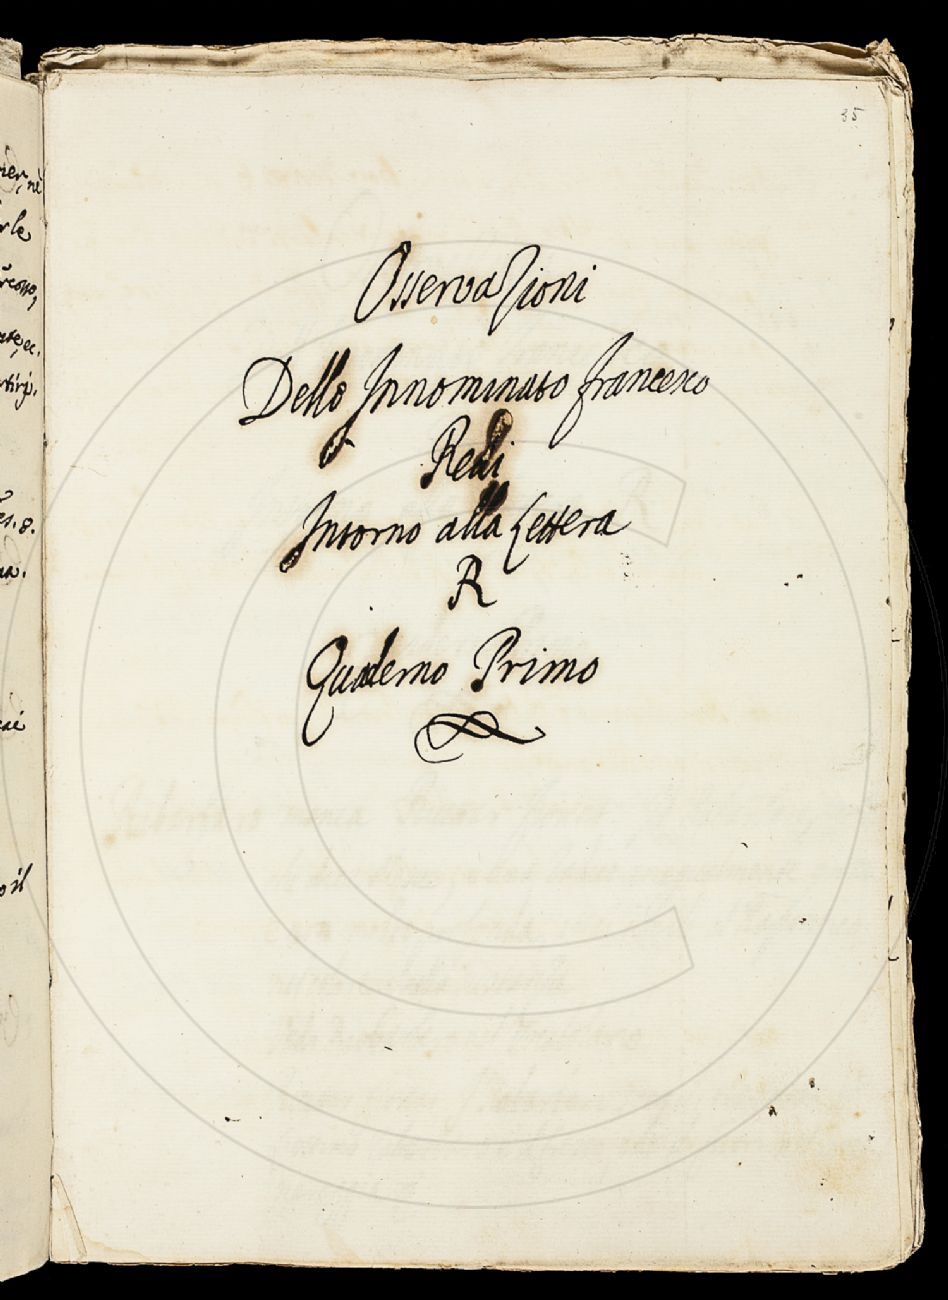 35
Osservazioni
Dello Innominato francesco
Redi
Intorno alla Lettera
R
Quaderno Primo